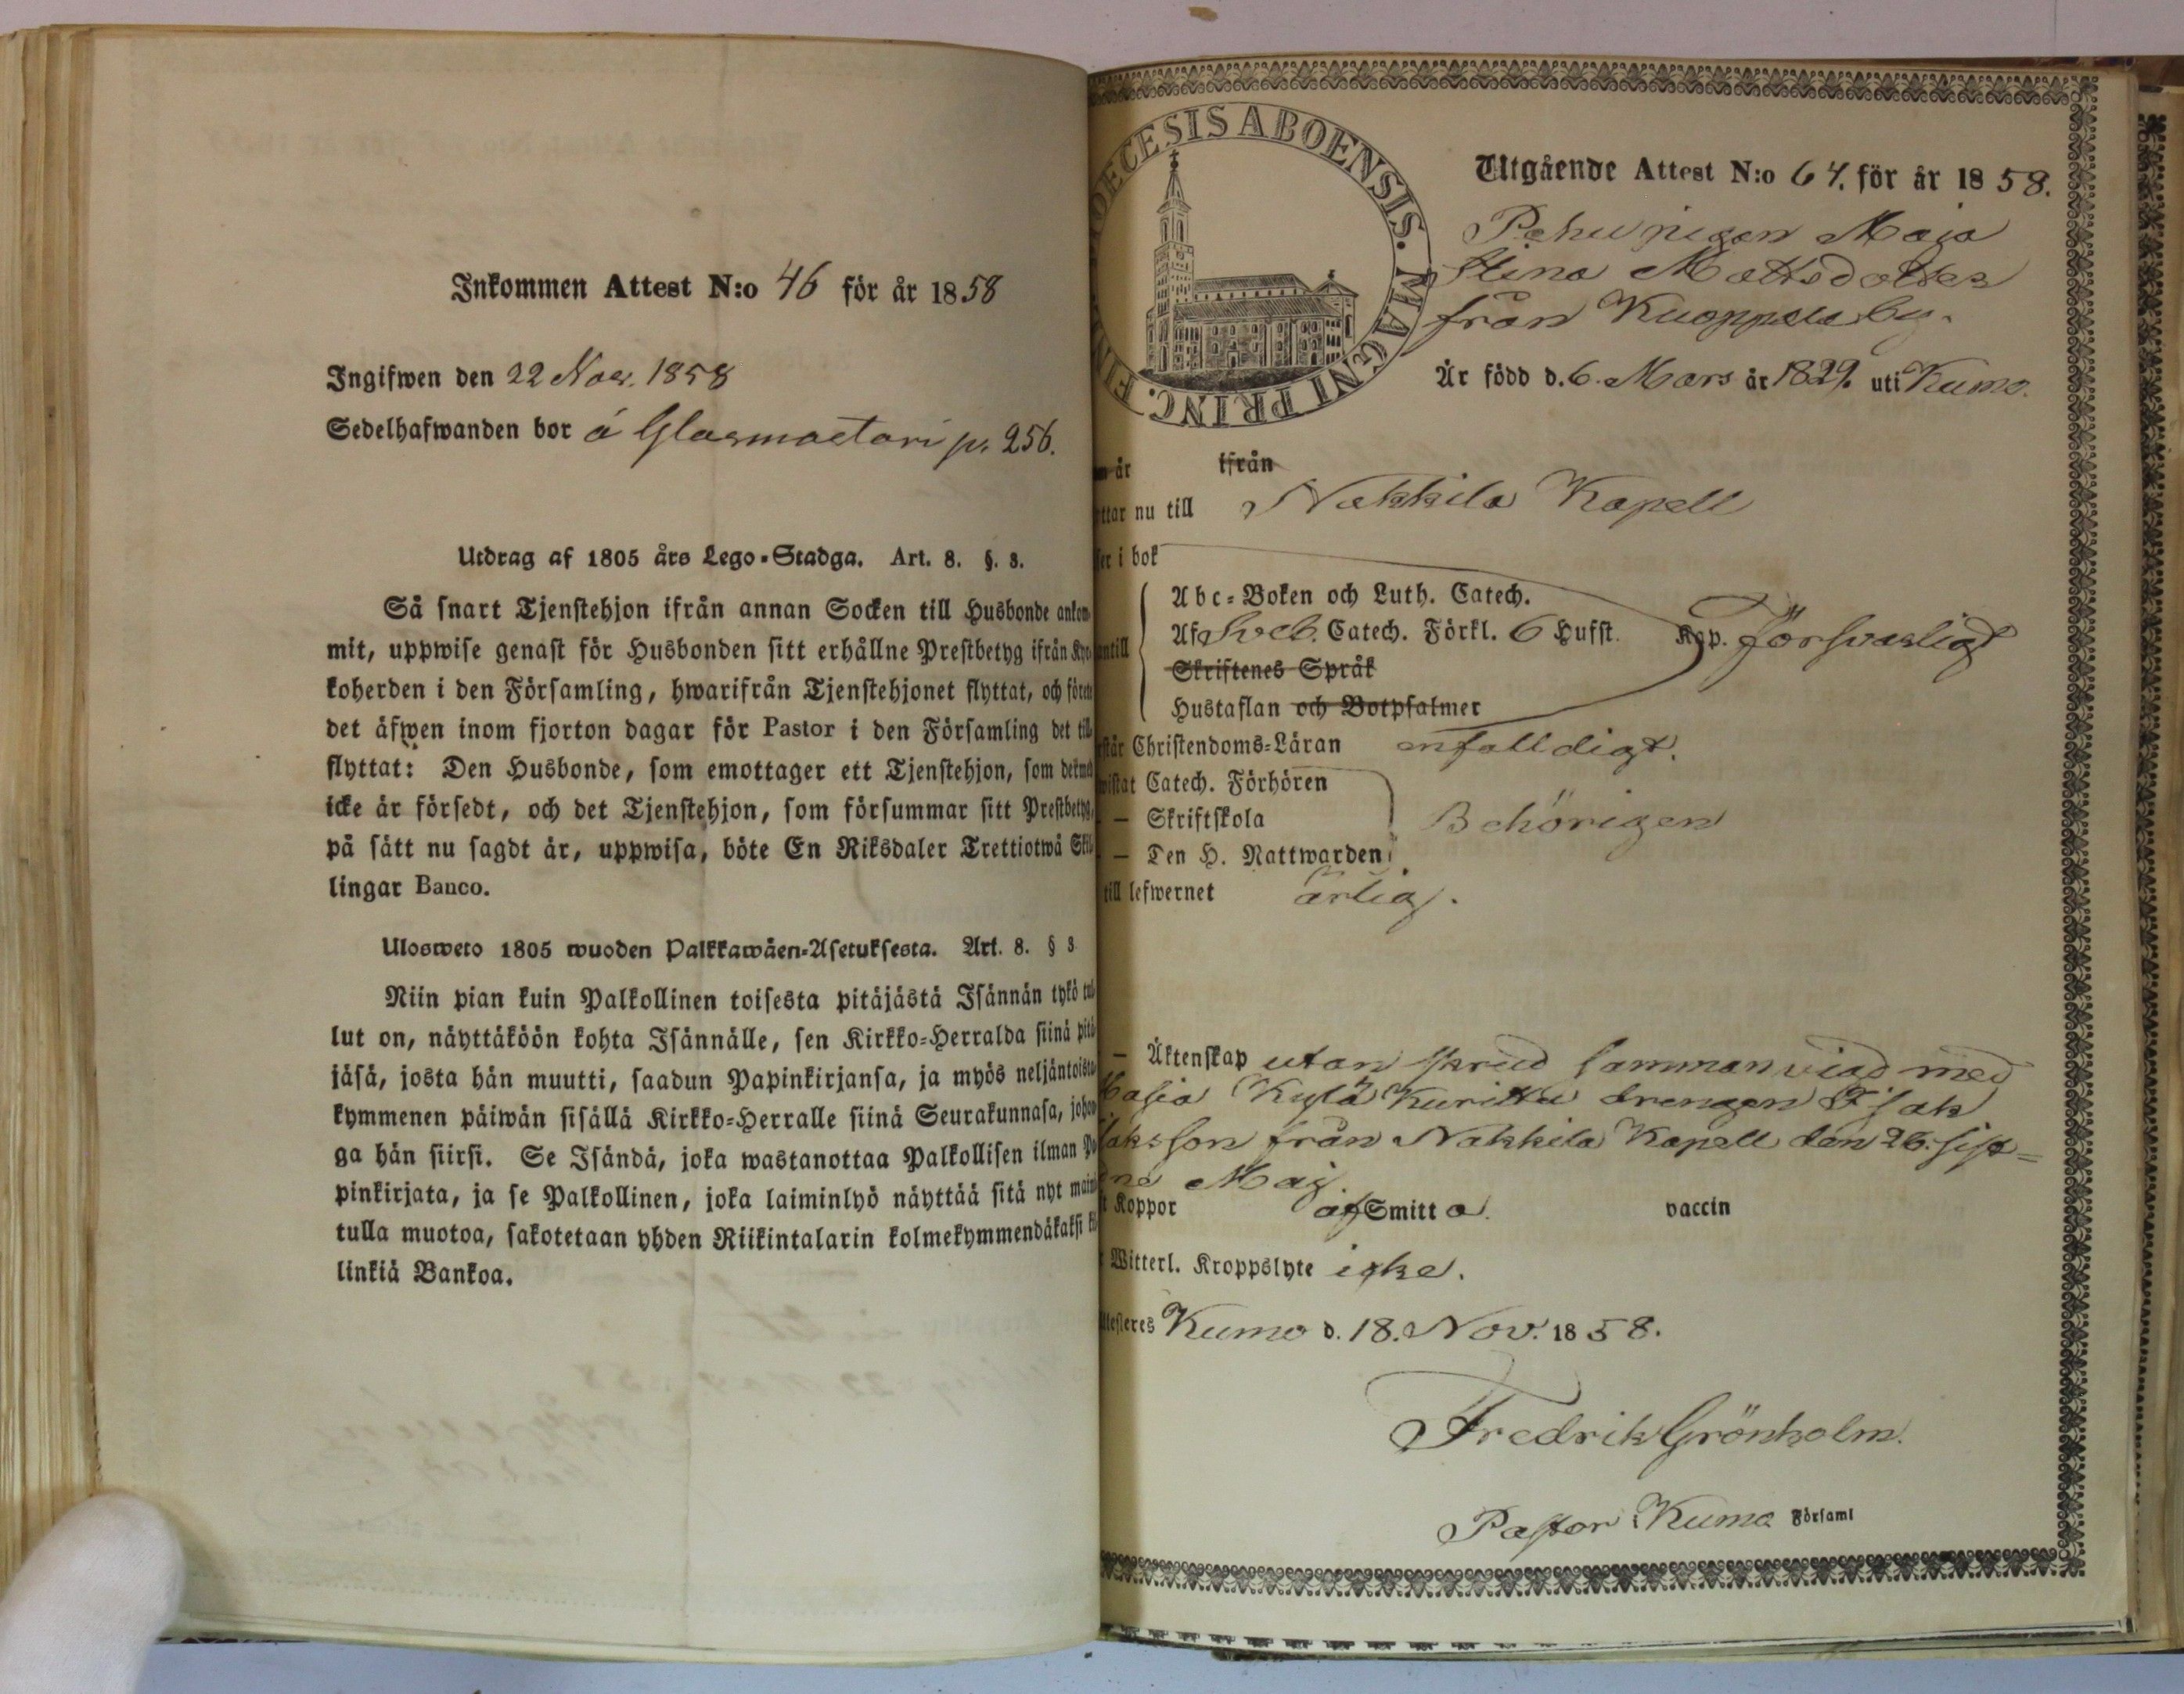 Inkommen Attest N:o 46 för år 1858
Ingifwen den 22 Nov. 1858
Sedelhafwanden bor å Glasmästari p. 256.
Utdrag af 1805 års Lego-Stadga. Art. 8. §. 3.
Så snart Tjenstehjon ifrån annan Socken till Husbonde ankom-
mit, uppwise genast för Husbonden sitt erhållne Prestbetyg ifrån Kyr-
koherden i den Församling, hwarifrån Tjenstehjonet flyttat, och förete
det äfwen inom fjorton dagar för Pastor i den Församling det till-
flyttat: Den Husbonde, som emottager ett Tjenstehjon, som dermed
icke är försedt, och det Tjenstehjon, som försummar sitt Prestbetyg,
på sätt nu sagdt är, uppwisa, böte En Riksdaler Trettiotwå Skil-
lingar Banco.
Ulosweto 1805 wuoden Palkkawäen-Asetuksesta. Art. 8. § 3
Niin pian kuin Palkollinen toisesta pitäjästä Isännän tykö tul-
lut on, näyttäköön kohta Isännälle, sen Kirkko-Herralda siinä pitä-
jäsä, josta hän muutti, saadun Papinkirjansa, ja myös neljäntoista-
kymmenen päiwän sisällä Kirkko-Herralle siinä Seurakunnasa, johon-
ga hän siirsi. Se Isändä, joka wastanottaa Palkollisen ilman Pa-
pinkirjata, ja se Palkollinen, joka laiminlyö näyttää sitä nyt main-
tulla muotoa, sakotetaan yhden Riikintalarin kolmekymmendäkaksi kil-
linkiä Bankoa.
DECESIS ABOENSIS. MAGNI PRINC. FIN
Utgående Attest N:o 64. för år 1858.
Pehu pigan Maja
Stina Mattsdotter
från Kuoppala by.
Är född d. 6. Mars år 1829. uti Kumo.
är ifrån
ttar nu till Nakkila Kapell
er i bok
Abc-Boken och Luth. Catech.
Af Sveb. Catech. Förkl. 6 Hufst. Kap. försvarligt
ntill
Skriftenes Språk
Hustaflan och Botpsalmer
står Christendoms-Läran enfalldigt.
wistat Catech. Förhören
— Skriftskola Behörigen
— Den H. Nattwarden
till lefwernet ärlig.
— Äktenskap utan skrud sammanviad med
Kylä Kuritta drengen Isak
aksson från Nakkila Kapell den 26. sist=
ne Maj.
t Koppor af Smitta. vaccin
Witterl. Kroppslyte icke.
ttesteres Kumo d. 18. Nov. 1858.
Fredrik Grönholm.
Pastor i Kumo Församl